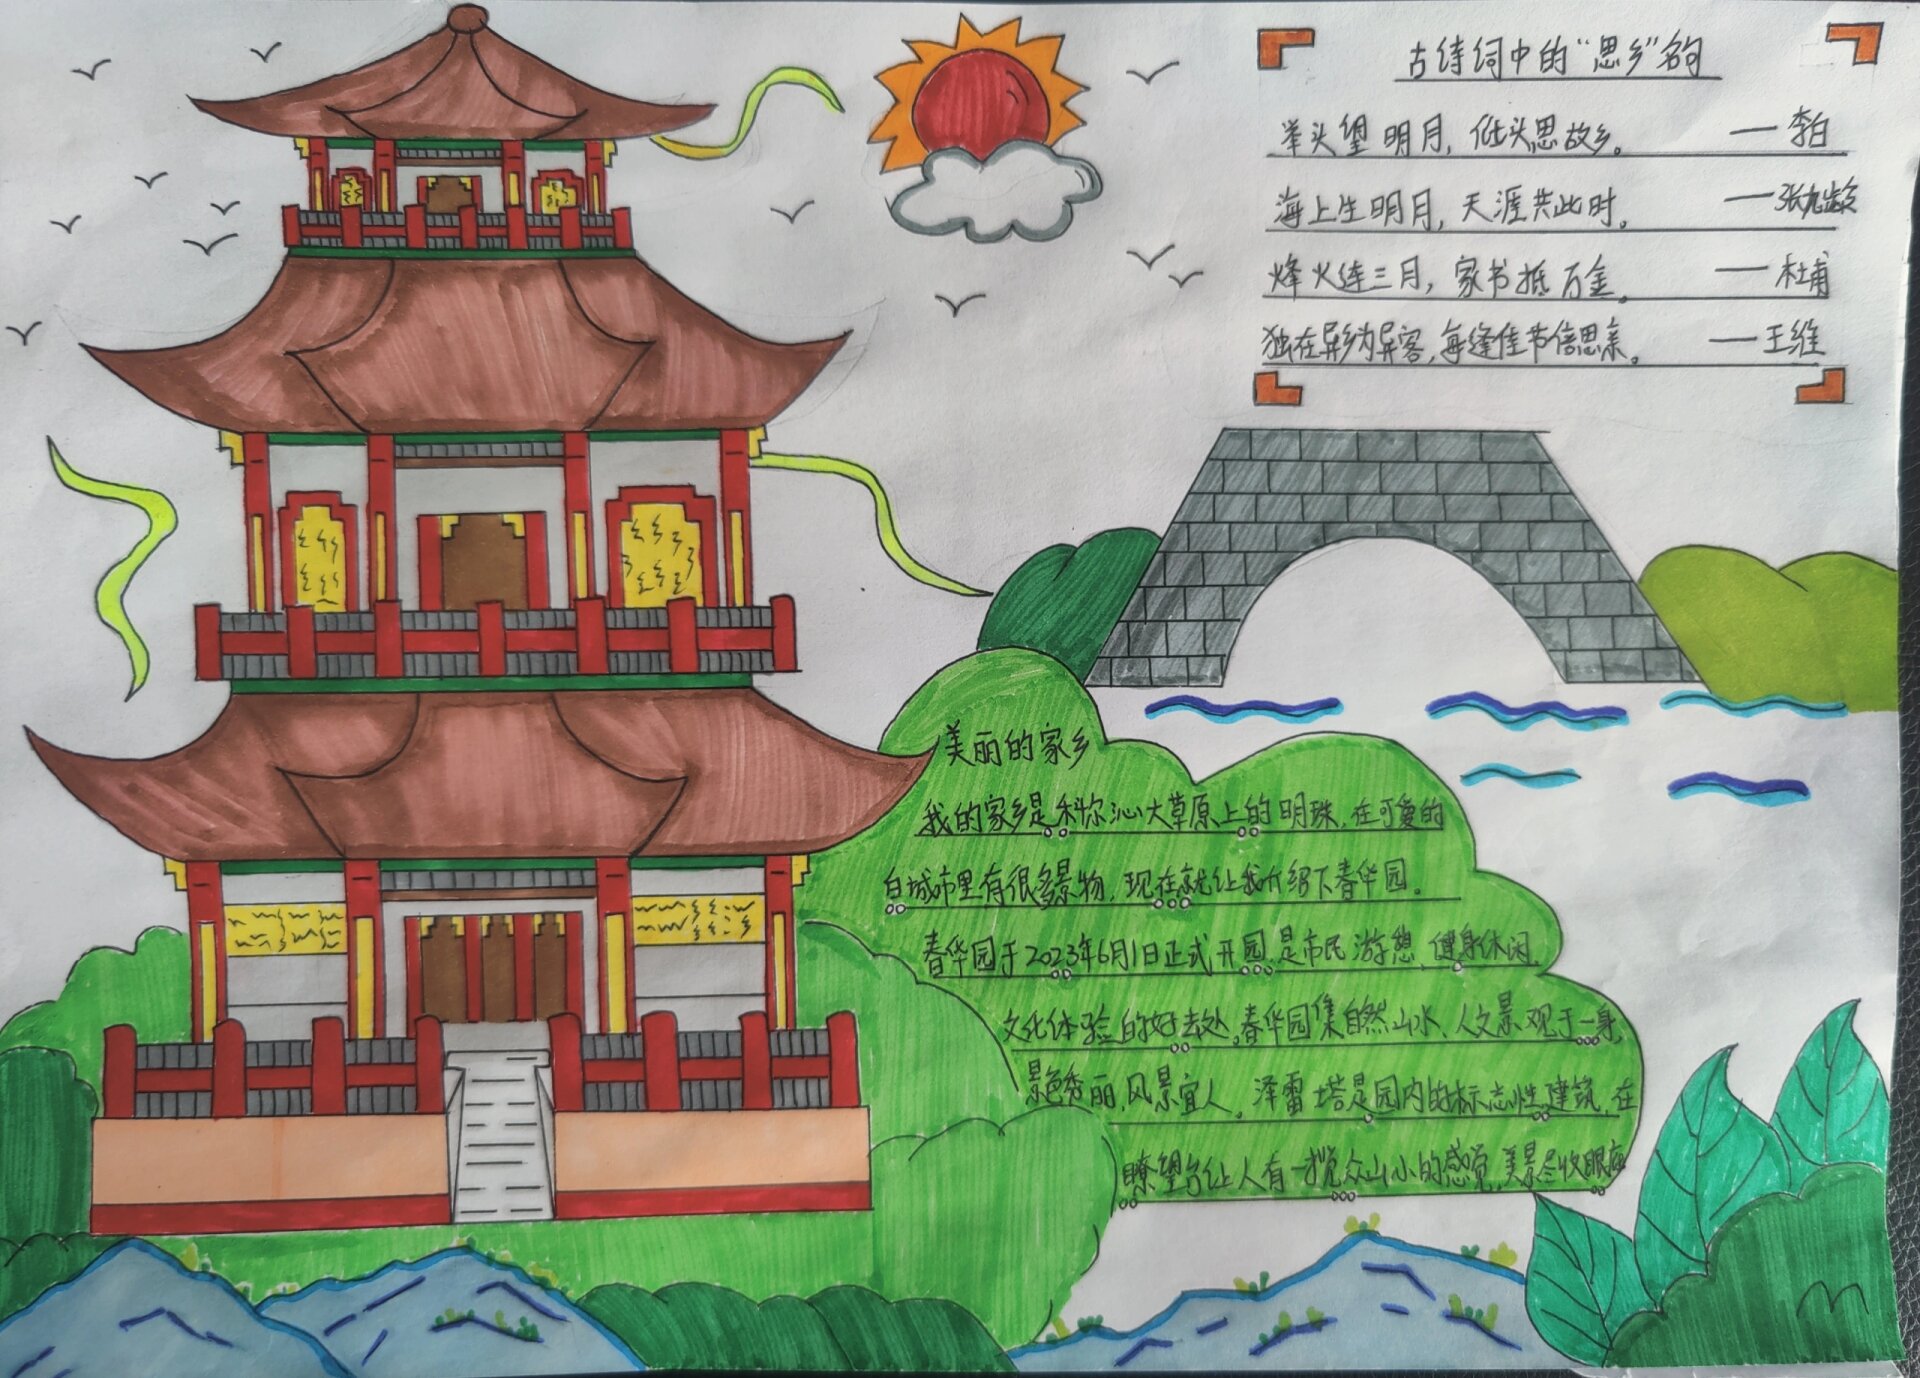 古诗词中的“思乡”名句
举头望明月，低头思故乡。 ——李白
海上生明月，天涯共此时。 ——张九龄
烽火连三月，家书抵万金。 ——杜甫
独在异乡为异客，每逢佳节倍思亲。 ——王维
美丽的家乡
我的家乡是科尔沁大草原上的明珠，在可爱的
白城市里有很多景物，现在就让我介绍下春华园。
春华园于2023年6月1日正式开园，是市民游憩、健身休闲、
文化体验的好去处。春华园集自然山水、人文景观于一身，
景色秀丽，风景宜人。泽雷塔是园内的标志性建筑，在
瞭望台让人有一揽众山小的感觉，美景尽收眼底